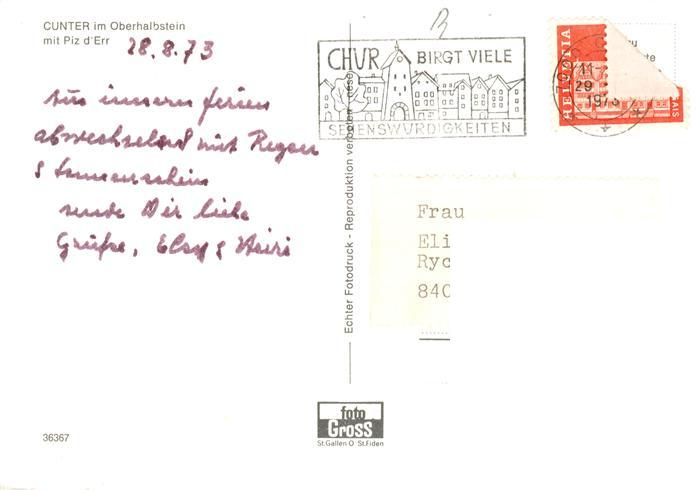 CUNTER im Oberhalbstein
mit Piz d'Err
28.8.73
Aus unsern Ferien
abwechselnd mit Regen
& Sonnenschein
sende Dir liebe
Grüsse, Elsy & Heiri
CHUR BIRGT VIELE
SEHENSWÜRDIGKEITEN
HELVETIA
11-
29
1973
Echter Fotodruck - Reproduktion verboten
Frau
Eli
Ryc
840
foto
Gross
St.Gallen O St.Fiden
36367